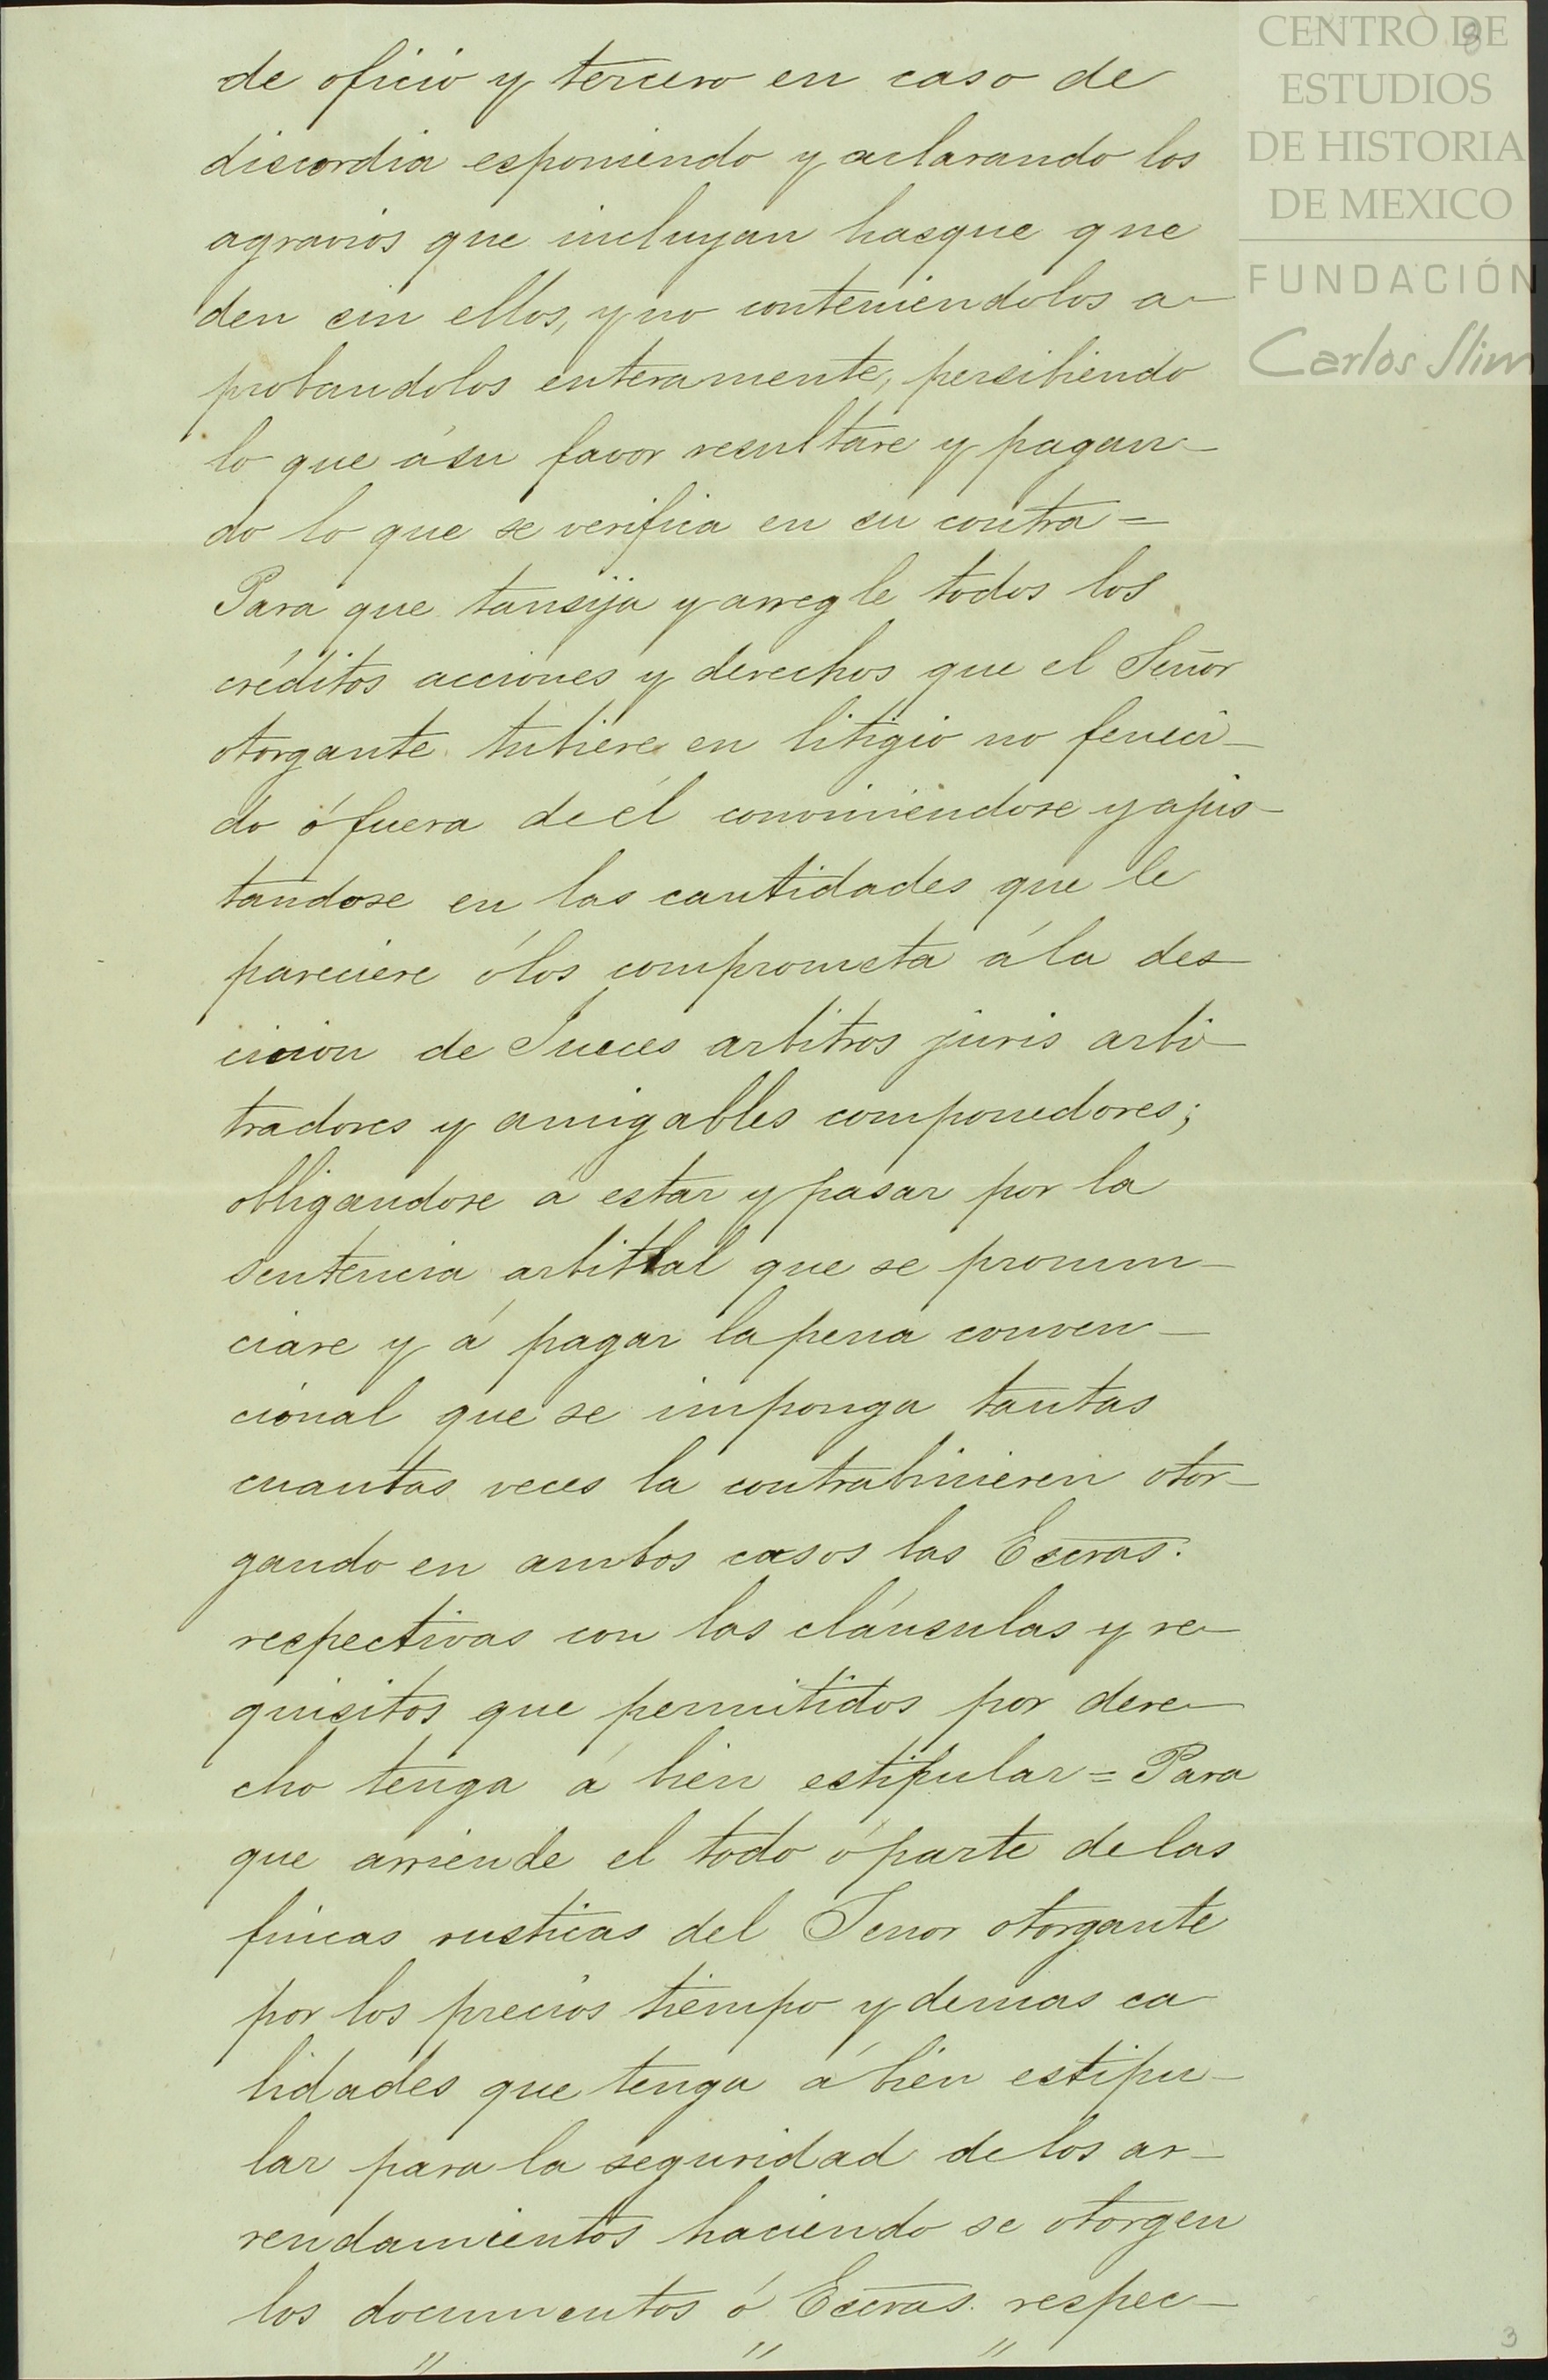 CENTRO DE
ESTUDIOS
DE HISTORIA
DE MEXICO
FUNDACIÓN
Carlos Slim
8
de oficio y tercero en caso de
discordia esponiendo y aclarando los
agravios que incluyan hasque que
den sin ellos, y no conteniendolos a-
probandolos enteramente, persibiendo
lo que á su favor resultare y pagan-
do lo que se verifica en su contra =
Para que tansija y arregle todos los
créditos acciones y derechos que el Señor
otorgante tubiere en litigio no feneci-
do ó fuera de él conviniendose y ajus-
tandose en las cantidades que le
pareciere ó los comprometa á la des
cicion de Jueces arbitros juris arbi-
tradores y amigables componedores;
obligandose á estar y pasar por la
sentencia arbitral que se pronun-
ciare y á pagar la pena conven-
cional que se imponga tantas
cuantas veces la contrabinieren otor-
gando en ambos casos las Escras.
respectivas con las cláusulas y re-
quisitos que permitidos por dere-
cho tenga á bien estipular = Para
que arriende el todo ó parte de las
fincas rusticas del Señor otorgante
por los precios tiempo y demas ca
lidades que tenga á bien estipu-
lar para la seguridad de los ar-
rendamientos haciendo se otorgen
los documentos ó Escras. respec-
" " "
3